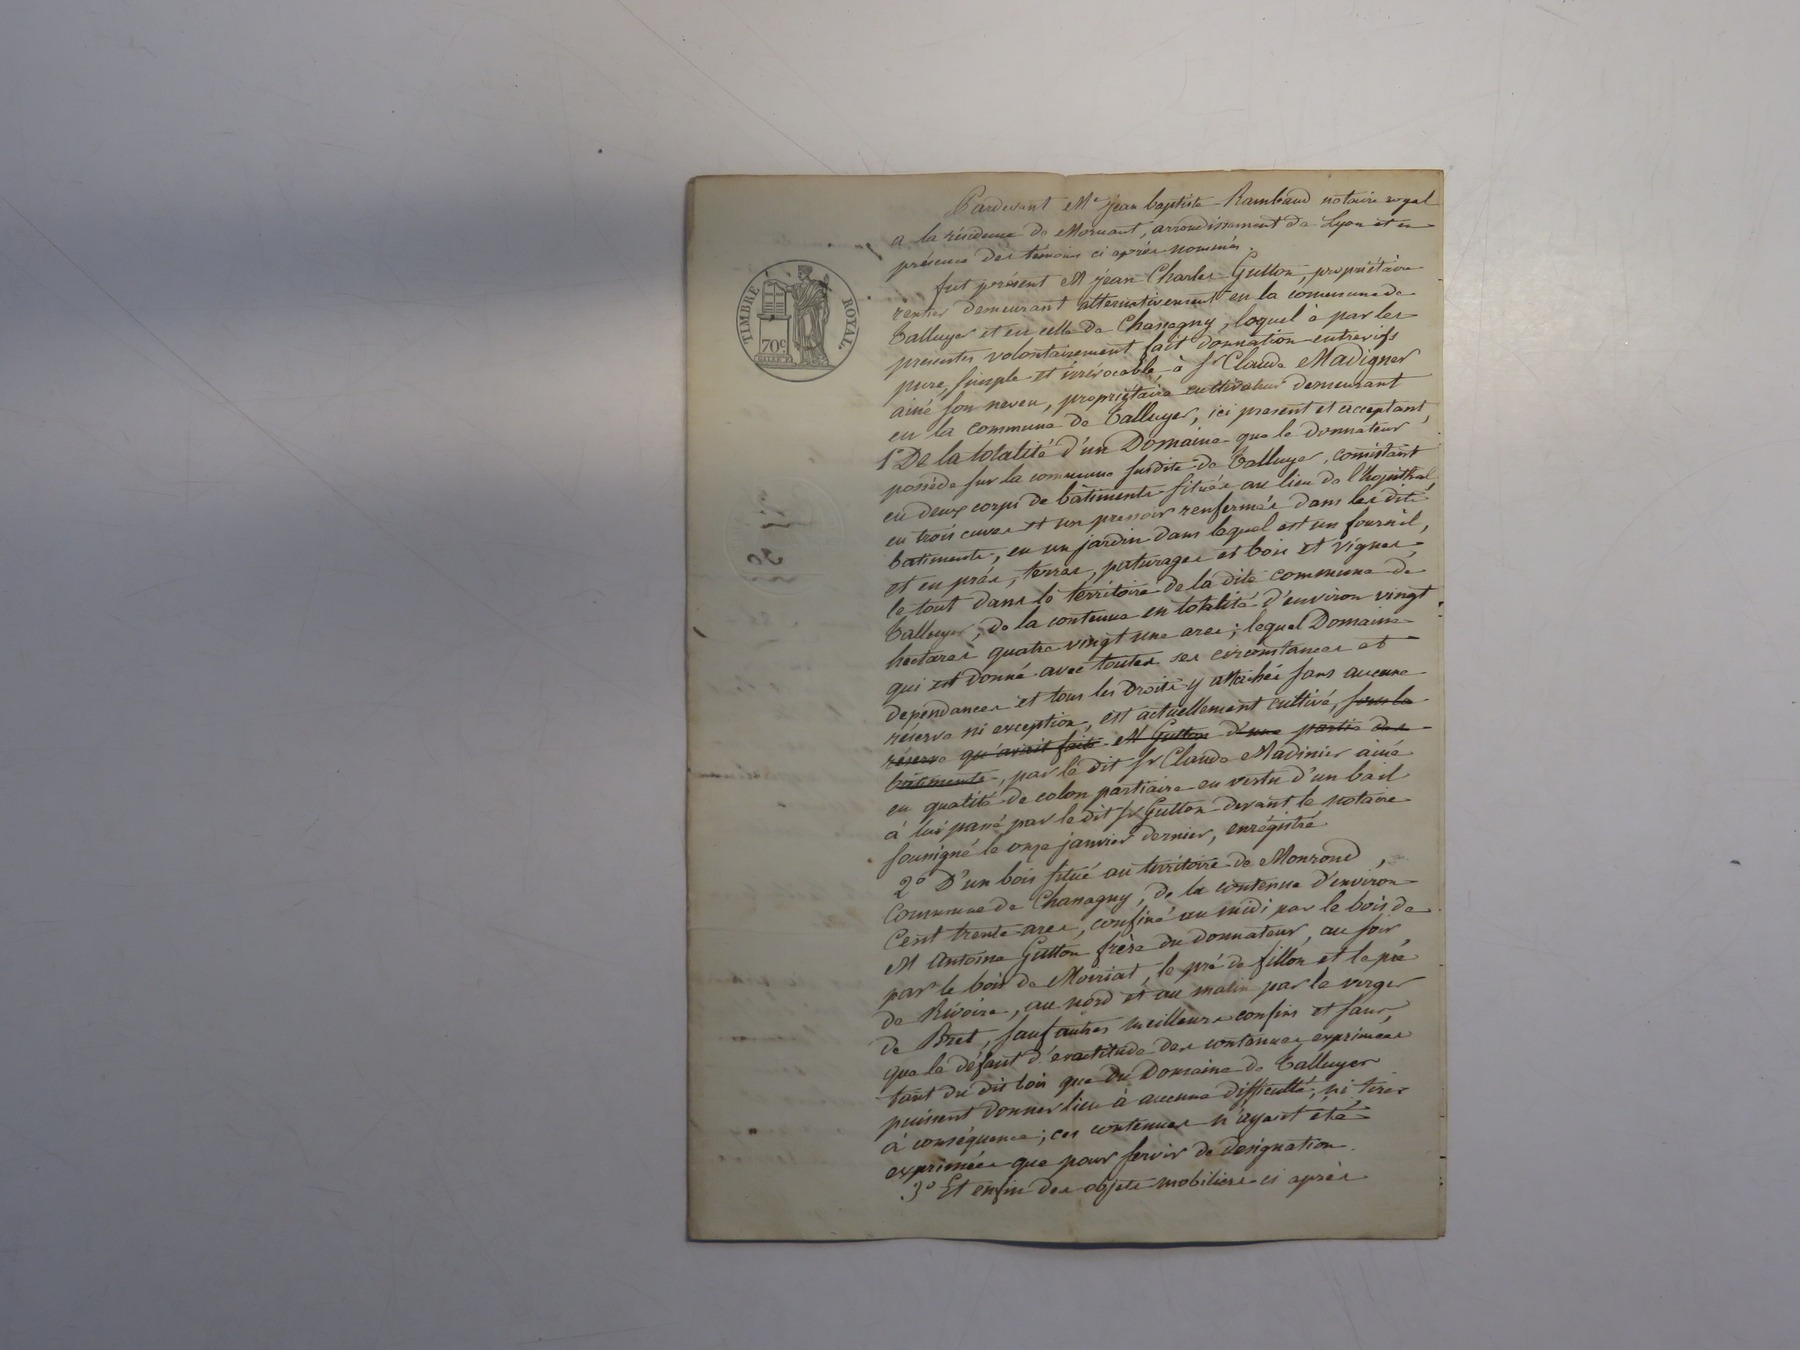 Pardevant Me jean baptiste Rambaud notaire royal
a la résidence de Mornant, arrondissement de Lyon et en
présence des témoins ci après nommés.
fut présent M jean Charles Gutton, propriétaire
rentier demeurant alternativement en la commune de
Talluyer et en celle de Chanagny, loquel à par les
presentes volontairement fait donnation entrevifs
pure, simple et irrévocable, à Sr Claude Madigner
ainé son neveu, propriétaire cultivateur demeurant
en la commune de Talluyer, ici present et acceptant,
1° De la totalité d'un Domaine que le donnateur
possède sur la commune susdite de Talluyer, consistant
en deux corps de bâtiments situés au lieu de l'hopithal,
en trois cuves et un pressoir renfermés dans les dits
batiments, en un jardin dans lequel est un fournil,
et en prés, terres, paturages et bois et vignes,
le tout dans le térritoire de la dite commune de
Talluyer, de la contenue en totalité d'environ vingt
hectares quatre vingt une ares; lequel Domaine
qui est donné avec toutes ses circonstances et
dépendances et tous les droits y attachés sans aucune
réserve ni exception, est actuellement cultivé, sous la
réserve qu'avait faite M Gutton d'une partie des
bâtiments, par le dit Sr Claude Madinier ainé
en qualité de colon partiaire en vertu d'un bail
à lui passé par le dit Sr Gutton devant le notaire
soussigné le onze janvier dernier, enrégistré
2° D'un bois situé au térritoire de Monrond,
Commune de Chanagny, de la contenue d'environ
Cent trente ares, confiné au midi par le bois de
M Antoine Gutton frère du donnateur, au soir
par le bois de Morriat, le pré de fillon et le pré
de Rivoire, au nord et au matin par le verger
de Bret, sauf autres meilleurs confins et sans
que le défaut d'exactitude des contenues exprimées
tant du dit bois que du Domaine de Talluyer
puissent donner lieu à aucune difficulté, ni tirer
à conséquence; ces contenues n'ayant été
exprimées que pour servir de désignation.
3° Et enfin des objets mobiliers ci après
TIMBRE ROYAL
70c